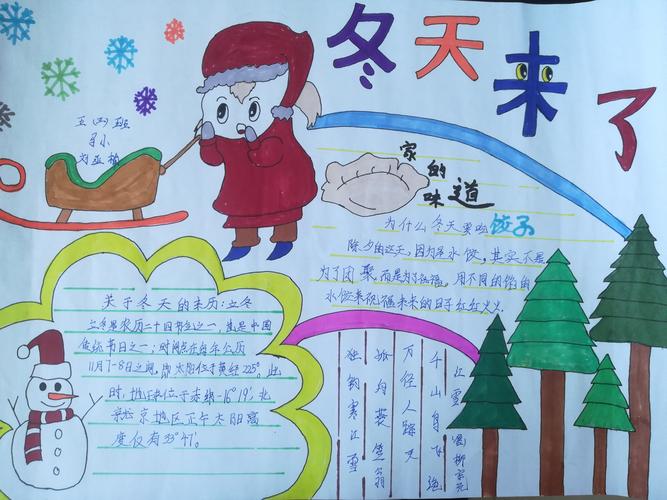 冬天来了
五(四)班
家的
味道
为什么冬天要吃饺子
除夕的这天,因为吃水饺,其实不是
为了团聚而是为了祝福,用不同的馅的
水饺来祝福未来的日子红红火火.
关于冬天的来历:立冬
立冬是农历二十四节气之一,也是中国
传统节日之一;时间点在每年公历
11月7-8日之间,即太阳位于黄经225°。此
时,地球位于赤纬-16°19',北
京地区正午太阳高
度仅有33°47'。
江雪 唐柳宗元
千山鸟飞绝
万径人踪灭
孤舟蓑笠翁
独钓寒江雪